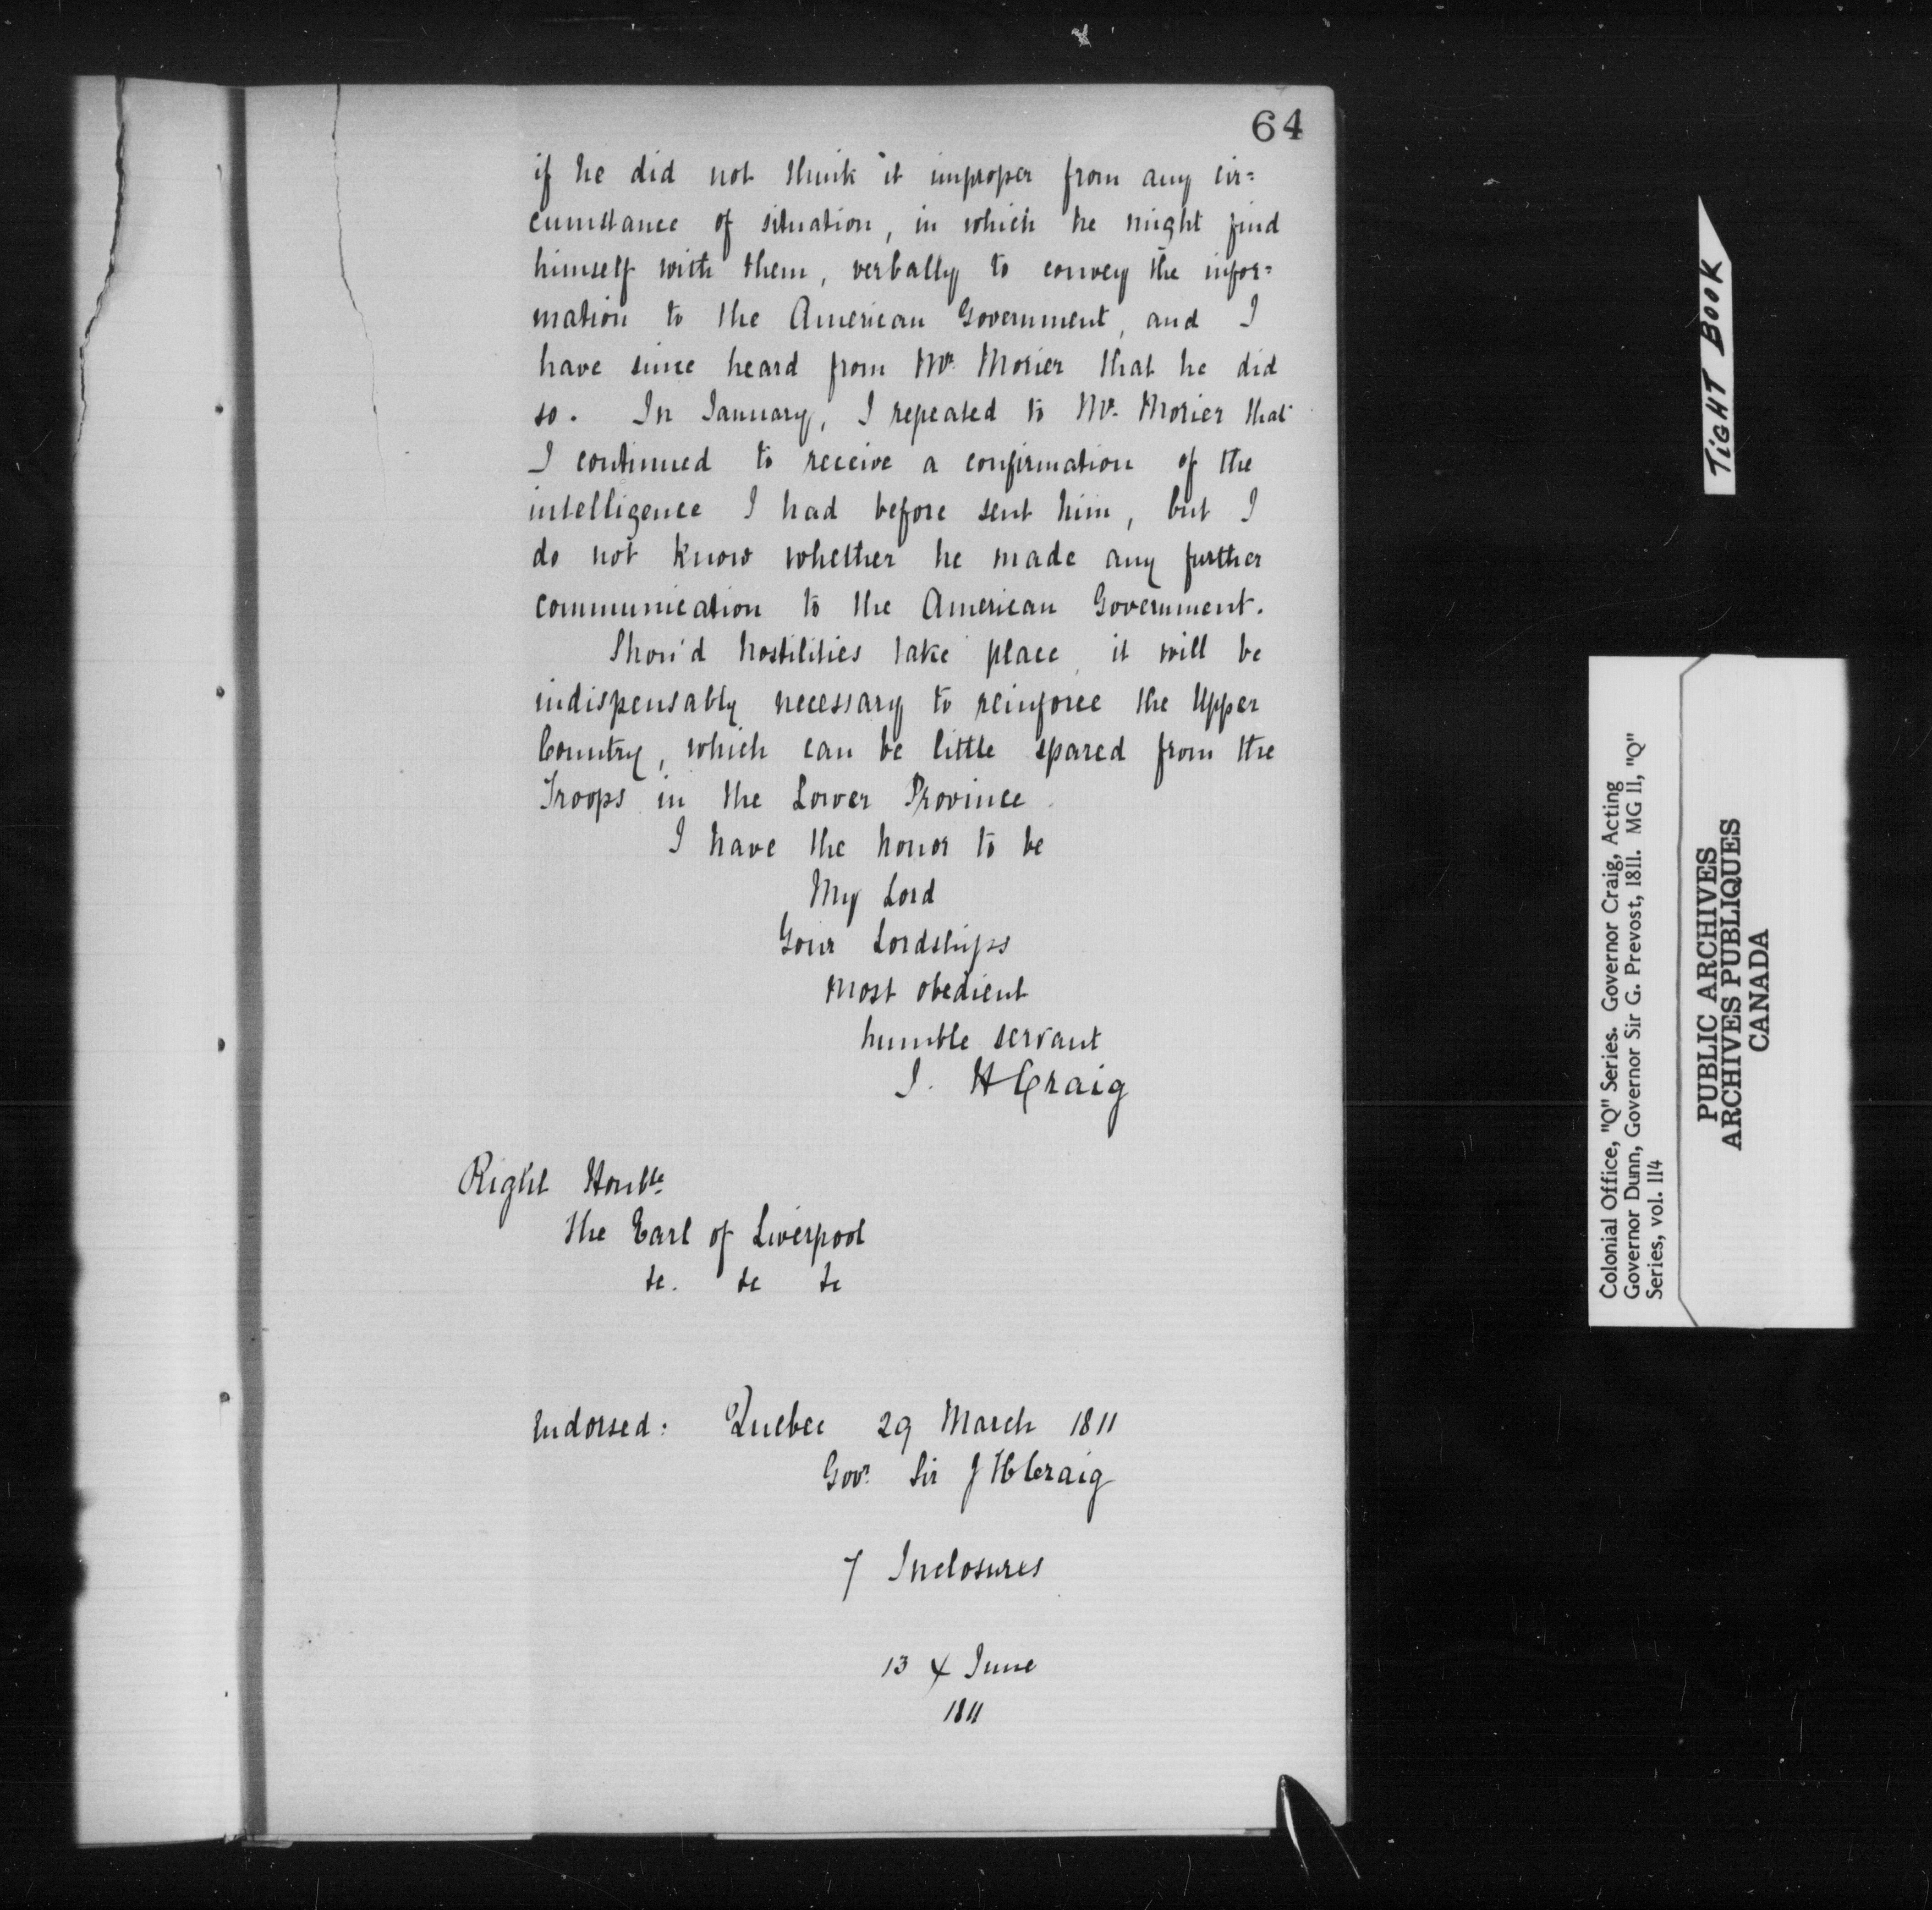 64
if he did not think it improper from any cir=
cumstance of situation, in which he might find
himself with them, verbally to convey the infor=
mation to the American Government, and I
have since heard from Mr. Morier that he did
so. In January, I repeated to Mr. Morier that
I continued to receive a confirmation of the
intelligence I had before sent him, but I
do not know whether he made any further
communication to the American Government.
Shou'd hostilities take place, it will be
indispensably necessary to reinforce the Upper
Country, which can be little spared from the
Troops in the Lower Province.
I have the honor to be
My Lord
Your Lordships
most obedient
humble servant
J. H Craig
Right Honble.
the Earl of Liverpool
&c. &c &c
Endorsed: Quebec 29 March 1811
Govr. Sir J H Craig
7 Inclosures
13 x June
1811
TIGHT BOOK
Colonial Office, "Q" Series. Governor Craig, Acting
Governor Dunn, Governor Sir G. Prevost, 1811. MG 11, "Q"
Series, vol. 114
PUBLIC ARCHIVES
ARCHIVES PUBLIQUES
CANADA